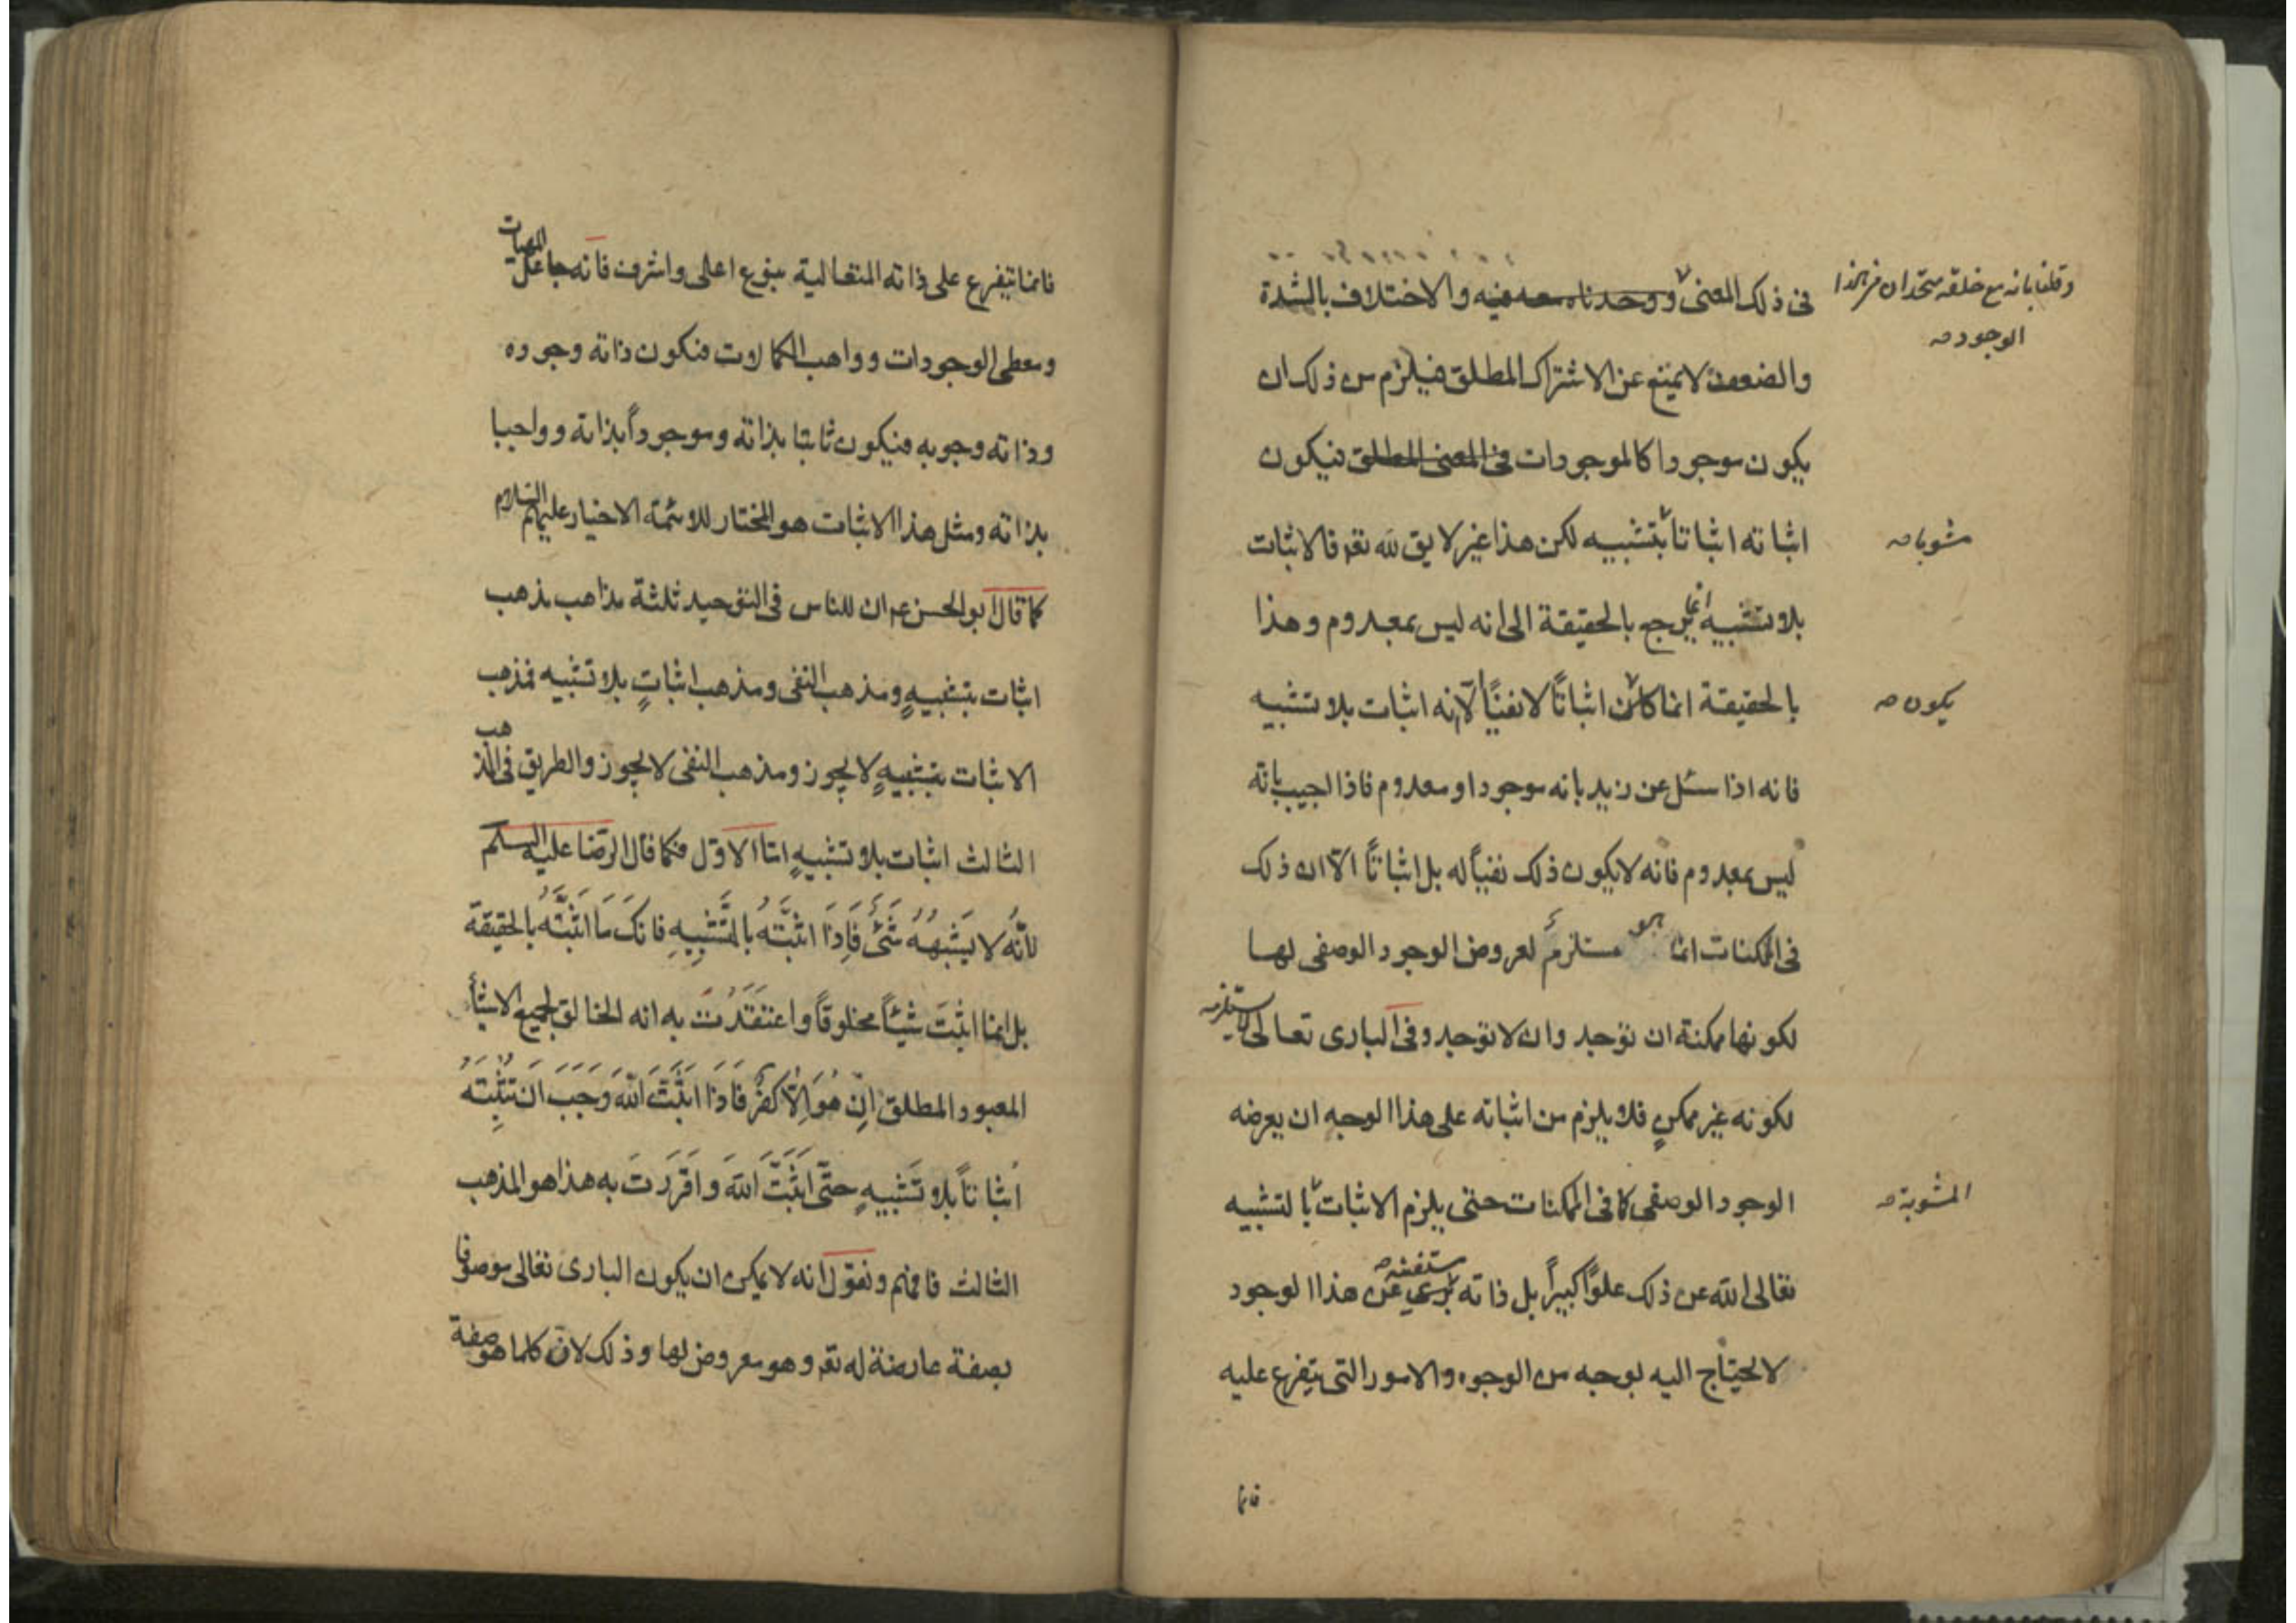 فى ذلك المعنى ووحدناه معه فيه والاختلاف بالشدة
وقلنا بانه مع خلقه متحدان فى هذا
الوجود صح
والضعف لا يمنع عن الاشتراك المطلق فيلزم من ذلك ان
يكون موجودا كالموجودات فى المعنى المطلق فيكون
اثباته اثباتا بتشبيه لكن هذا غير لايق لله تعه فالاثبات
مشوبا صح
بلا تشبيه انما يرجع بالحقيقة الى انه ليس بمعدوم وهذا
بالحقيقة انما كان اثباتًا لا نفيًا لانه اثبات بلا تشبيه
يكون صح
فانه اذا سئل عن زيد بانه موجود او معدوم فاذا اجيب بانه
ليس بمعدوم فانه لا يكون ذلك نفيًا له بل اثباتًا الّا ان ذلك
فى الممكنات انما هو مستلزم لعروض الوجود الوصفى لها
لكونها ممكنة ان توجد وان لا توجد وفى البارى تعالى لا يستلزمه
لكونه غير ممكنٍ فلا يلزم من اثباته على هذا الوجه ان يعرضه
الوجود الوصفى كما فى الممكنات حتى يلزم الاثبات بالتشبيه
المشوبة صح
تعالى الله عن ذلك علوًا كبيرًا بل ذاته برىء عن هذا الوجود
مستغنية صح
لا يحتاج اليه بوجه من الوجوه والامور التى يتفرع عليه
فانما
فانما يتفرع على ذاته المتعالية بنوع اعلى واشرف فانه جاعل المهيات
ومعطى الوجودات وواهب الكمالات فتكون ذاته وجوده
وذاته وجوبه فيكون ثابتا بذاته وموجوداً بذاته وواجبا
بذاته ومثل هذا الاثبات هو المختار للائمة الاخيار عليهم السلام
كما قال ابو الحسن عم ان للناس فى التوحيد ثلثة مذاهب مذهب
اثبات بتشبيهٍ ومذهب النفى ومذهب اثباتٍ بلا تشبيه فمذهب
الاثبات بتشبيهٍ لا يجوز ومذهب النفى لا يجوز والطريق فى المذهب
الثالث اثبات بلا تشبيهٍ امّا الاوّل فكما قال الرضا عليه السلم
لِاَنَّهُ لا يَشْبِهُهُ شَىْءٌ فَاِذَا اثبَتَّهُ بالتَّشْبِيهِ فانكَ مَا اثبَتَّهُ بالحقيقة
بل انما اثبَتَّ شيئاً مخلوقاً واعتقَدْتَ به انه الخالق لجميع الاشيأ
المعبود المطلق اِنْ هُوَ اِلَّا كفرٌ فَاذَا اثبَتَّ اللهَ وَجَبَ اَن تثْبِتَهُ
اثباتاً بلا تَشْبِيهٍ حتّى اَثبَتَّ اللهَ واَقْرَرتَ به هذا هو المذهب
الثالث فافهم ونقول انه لا يمكن ان يكون البارى تعالى موصوفا
بصفة عارضة له تعه وهو معروض لها وذلك لان كلما هو صفة